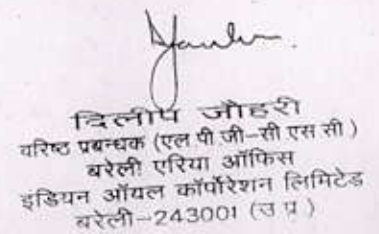 दिलीप जौहरी
वरिष्ठ प्रबन्धक (एल पी जी-सी एस सी)
बरेली एरिया ऑफिस
इंडियन ऑयल कॉर्पोरेशन लिमिटेड
बरेली-243001 (उ प्र)